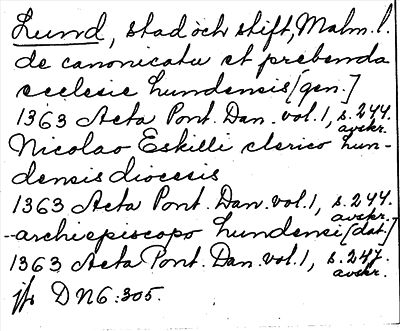 Lund, stad och stift, Malm. l.
de canonicatu et prebenda
ecclesie Lundensis [gen.]
1363 Acta Pont. Dan. vol. 1, s. 244.
avskr.
Nicolao Eskilli clerico Lun-
densis diocesis
1363 Acta Pont. Dan. vol. 1, s. 244.
avskr.
-archiepiscopo Lundensi [dat.]
1363 Acta Pont. Dan. vol. 1, s. 247.
avskr.
jfr DN6:305.